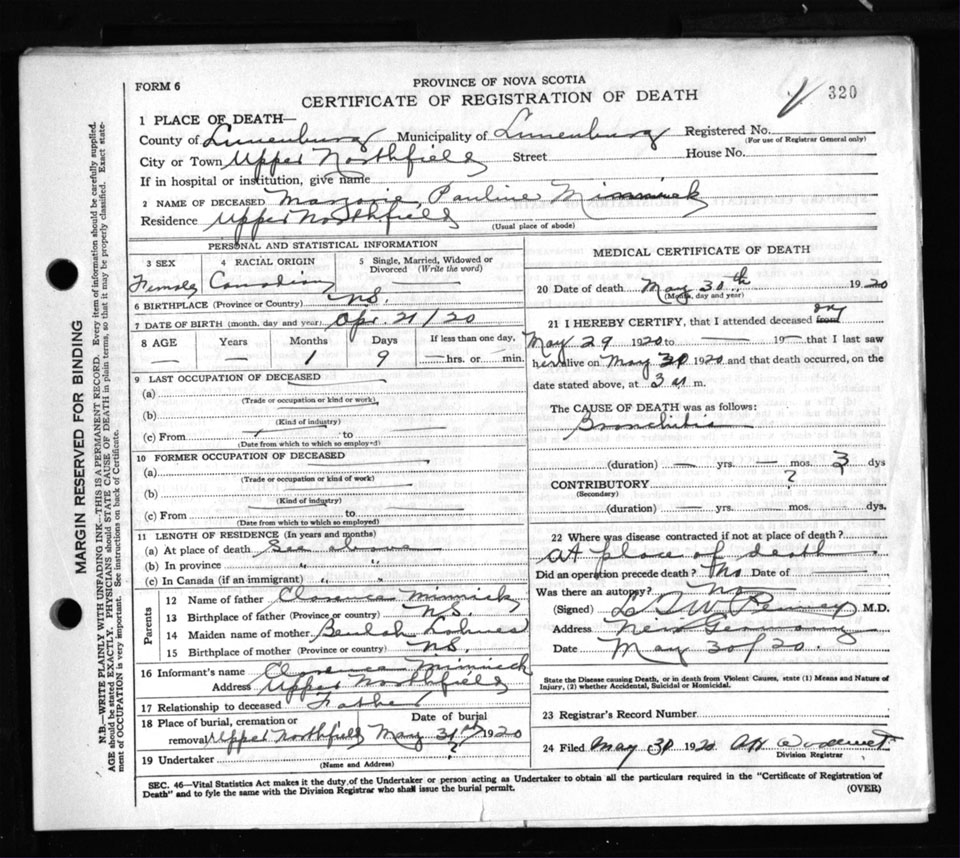 320
FORM 6
PROVINCE OF NOVA SCOTIA
CERTIFICATE OF REGISTRATION OF DEATH
1 PLACE OF DEATH—
County of Lunenburg Municipality of Lunenburg Registered No.
(For use of Registrar General only)
City or Town Upper Northfield Street House No.
If in hospital or institution, give name
2 NAME OF DECEASED Marjorie Pauline Minnick
Residence Upper Northfield
(Usual place of abode)
PERSONAL AND STATISTICAL INFORMATION
3 SEX
Female
4 RACIAL ORIGIN
Canadian
5 Single, Married, Widowed or
Divorced (Write the word)
6 BIRTHPLACE (Province or Country) N.S.
7 DATE OF BIRTH (month, day and year) Apr. 21/20
8 AGE Years Months Days If less than one day,
— — 1 9 —hrs. or — min.
9 LAST OCCUPATION OF DECEASED
(a)
(Trade or occupation or kind or work)
(b)
(Kind of industry)
(c) From to
(Date from which to which so employed)
10 FORMER OCCUPATION OF DECEASED
(a)
(Trade or occupation or kind of work)
(b)
(Kind of industry)
(c) From to
(Date from which to which so employed)
11 LENGTH OF RESIDENCE (In years and months)
(a) At place of death See above
(b) In province " "
(c) In Canada (if an immigrant) " "
Parents
12 Name of father Clarence Minnick
13 Birthplace of father (Province or country) N.S.
14 Maiden name of mother Beulah
15 Birthplace of mother (Province or country) N.S.
16 Informant's name Clarence Minnick
Address Upper Northfield
17 Relationship to deceased Father
18 Place of burial, cremation or Date of burial
removal Upper Northfield May 31st 1920
19 Undertaker ?
(Name and Address)
MEDICAL CERTIFICATE OF DEATH
20 Date of death May 30th 1920
(Month, day and year)
21 I HEREBY CERTIFY, that I attended deceased from on
May 29 1920 to — 19— that I last saw
her alive on May 30 1920 and that death occurred, on the
date stated above, at 3 a m.
The CAUSE OF DEATH was as follows:
Bronchitis
(duration) — yrs. — mos. 3 dys
CONTRIBUTORY ?
(Secondary)
(duration) — yrs. mos. dys.
22 Where was disease contracted if not at place of death?
At place of death
Did an operation precede death? No Date of —
Was there an autopsy? No
(Signed) Penney M.D.
Address New Germany
Date May 30/20.
State the Disease causing Death, or in death from Violent Causes, state (1) Means and Nature of
Injury, (2) whether Accidental, Suicidal or Homicidal.
23 Registrar's Record Number
24 Filed May 31 1920
Division Registrar
SEC. 46—Vital Statistics Act makes it the duty of the Undertaker or person acting as Undertaker to obtain all the particulars required in the "Certificate of Registration of
Death" and to fyle the same with the Division Registrar who shall issue the burial permit. (OVER)
MARGIN RESERVED FOR BINDING
N.B.—WRITE PLAINLY WITH UNFADING INK—THIS IS A PERMANENT RECORD. Every item of information should be carefully supplied.
AGE should be stated EXACTLY. PHYSICIANS should STATE CAUSE OF DEATH in plain terms, so that it may be properly classified. Exact state-
ment of OCCUPATION is very important. See instructions on back of Certificate.